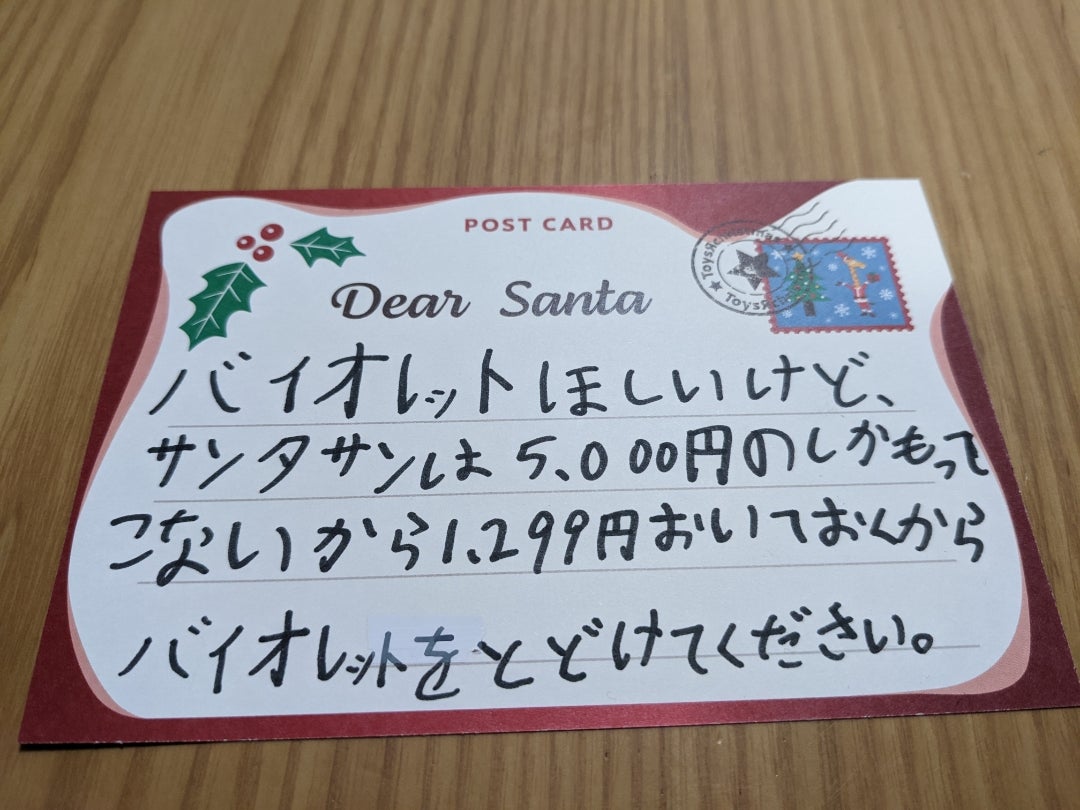 POST CARD
Dear Santa
バイオレットほしいけど、
サンタサンは5,000円のしかもって
こないから1,299円おいておくから
バイオレットをとどけてください。